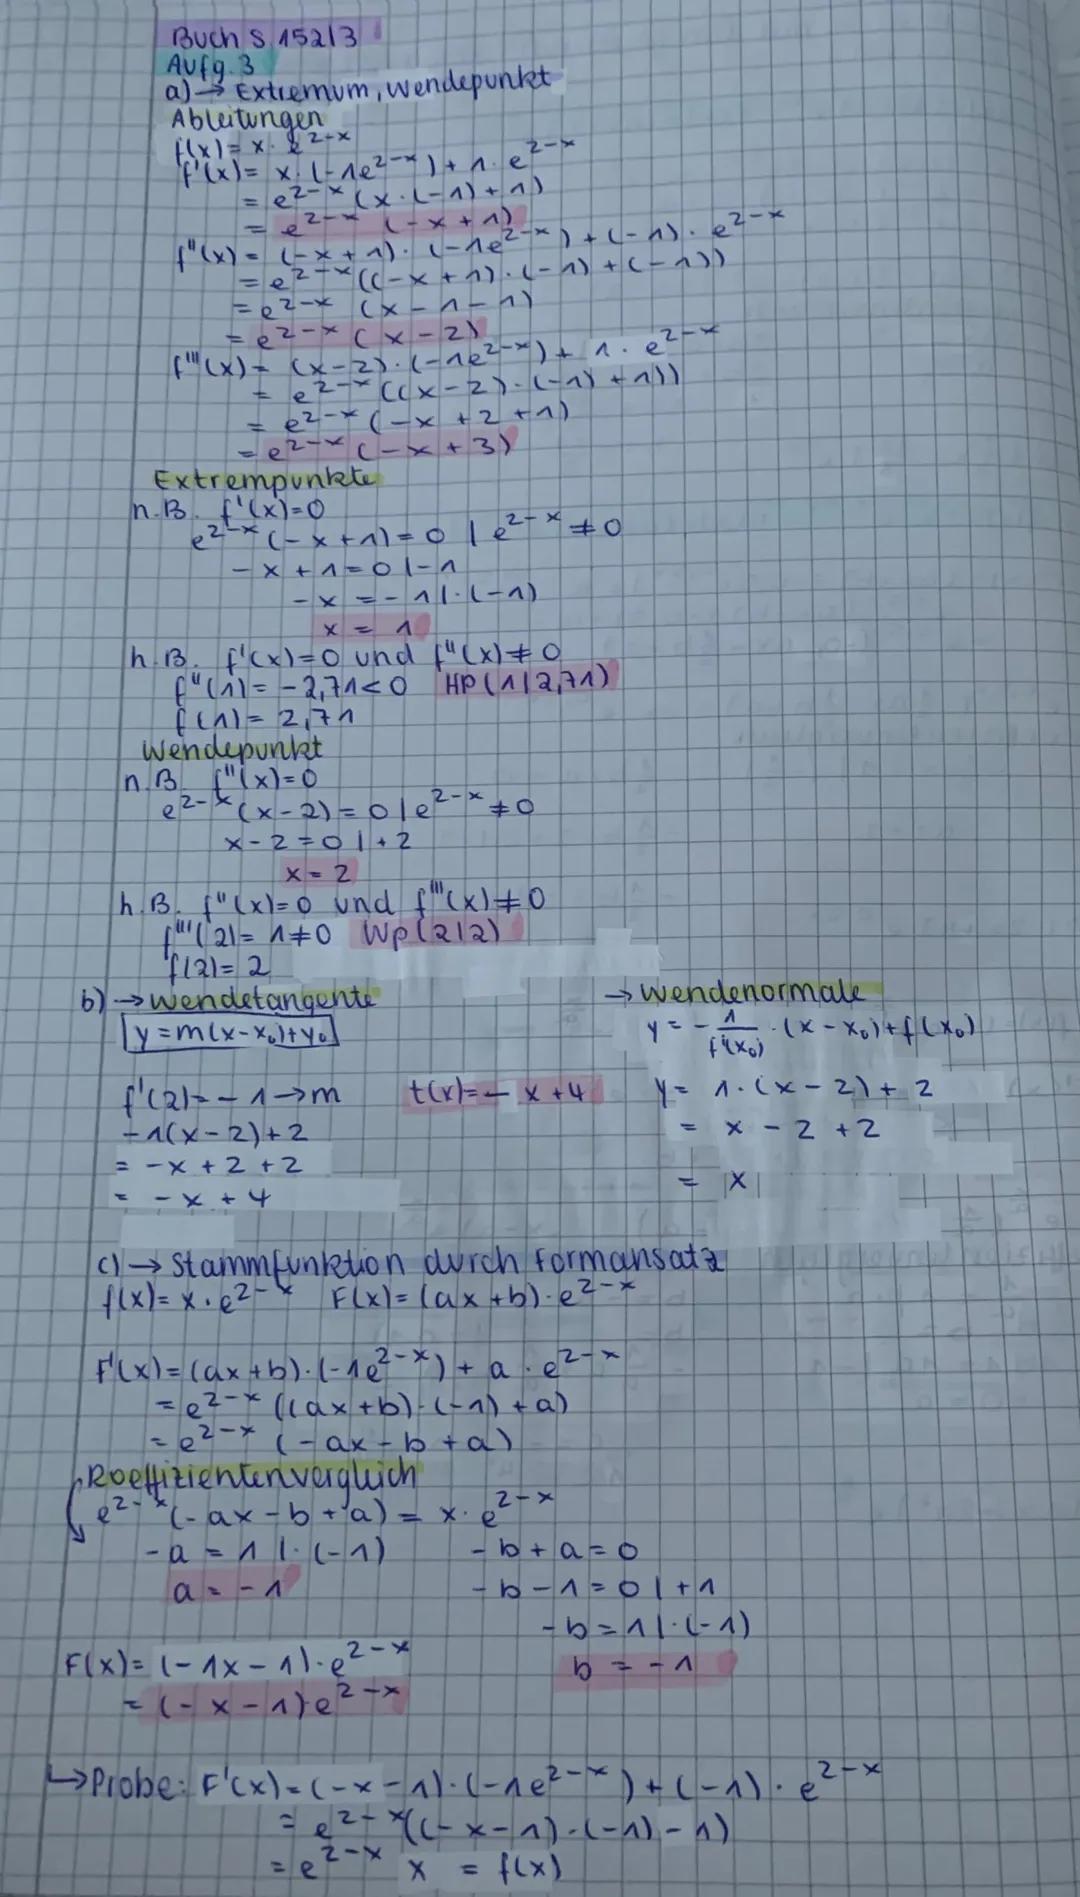 Buch S. 152/3
Aufg. 3
a) → Extremum, Wendepunkt
Ableitungen
f(x) = x · e^(2-x)
f'(x) = x · (-1e^(2-x)) + 1 · e^(2-x)
= e^(2-x) (x · (-1) + 1)
= e^(2-x) (-x + 1)
f''(x) = (-x + 1) · (-1e^(2-x)) + (-1) · e^(2-x)
= e^(2-x) ((-x + 1) · (-1) + (-1))
= e^(2-x) (x - 1 - 1)
= e^(2-x) (x - 2)
f'''(x) = (x - 2) · (-1e^(2-x)) + 1 · e^(2-x)
= e^(2-x) ((x - 2) · (-1) + 1))
= e^(2-x) (-x + 2 + 1)
= e^(2-x) (-x + 3)
Extrempunkte
n.B. f'(x)=0
e^(2-x) (-x + 1) = 0 | e^(2-x) ≠ 0
-x + 1 = 0 | -1
-x = -1 | · (-1)
x = 1
h.B. f'(x)=0 und f''(x) ≠ 0
f''(1) = -2,71 < 0 HP (1|2,71)
f(1) = 2,71
Wendepunkt
n.B. f''(x)=0
e^(2-x) (x - 2) = 0 | e^(2-x) ≠ 0
x - 2 = 0 | + 2
x = 2
h.B. f''(x)=0 und f'''(x) ≠ 0
f'''(2) = 1 ≠ 0 Wp (2|2)
f(2) = 2
b) → Wendetangente
y = m(x - x₀) + y₀
f'(2) = -1 → m t(x) = -x + 4
-1(x - 2) + 2
= -x + 2 + 2
= -x + 4
→ Wendenormale
y = - 1/f'(x₀) · (x - x₀) + f(x₀)
y = 1 · (x - 2) + 2
= x - 2 + 2
= x
c) → Stammfunktion durch Formansatz
f(x) = x · e^(2-x) F(x) = (ax + b) · e^(2-x)
F'(x) = (ax + b) · (-1e^(2-x)) + a · e^(2-x)
= e^(2-x) ((ax + b) · (-1) + a)
= e^(2-x) (-ax - b + a)
Koeffizientenvergleich
e^(2-x) (-ax - b + a) = x · e^(2-x)
-a = 1 | · (-1) -b + a = 0
a = -1 -b - 1 = 0 | + 1
-b = 1 | · (-1)
b = -1
F(x) = (-1x - 1) · e^(2-x)
= (-x - 1) · e^(2-x)
↳ Probe: F'(x) = (-x - 1) · (-1e^(2-x)) + (-1) · e^(2-x)
= e^(2-x) ((-x - 1) · (-1) - 1)
= e^(2-x) x = f(x)